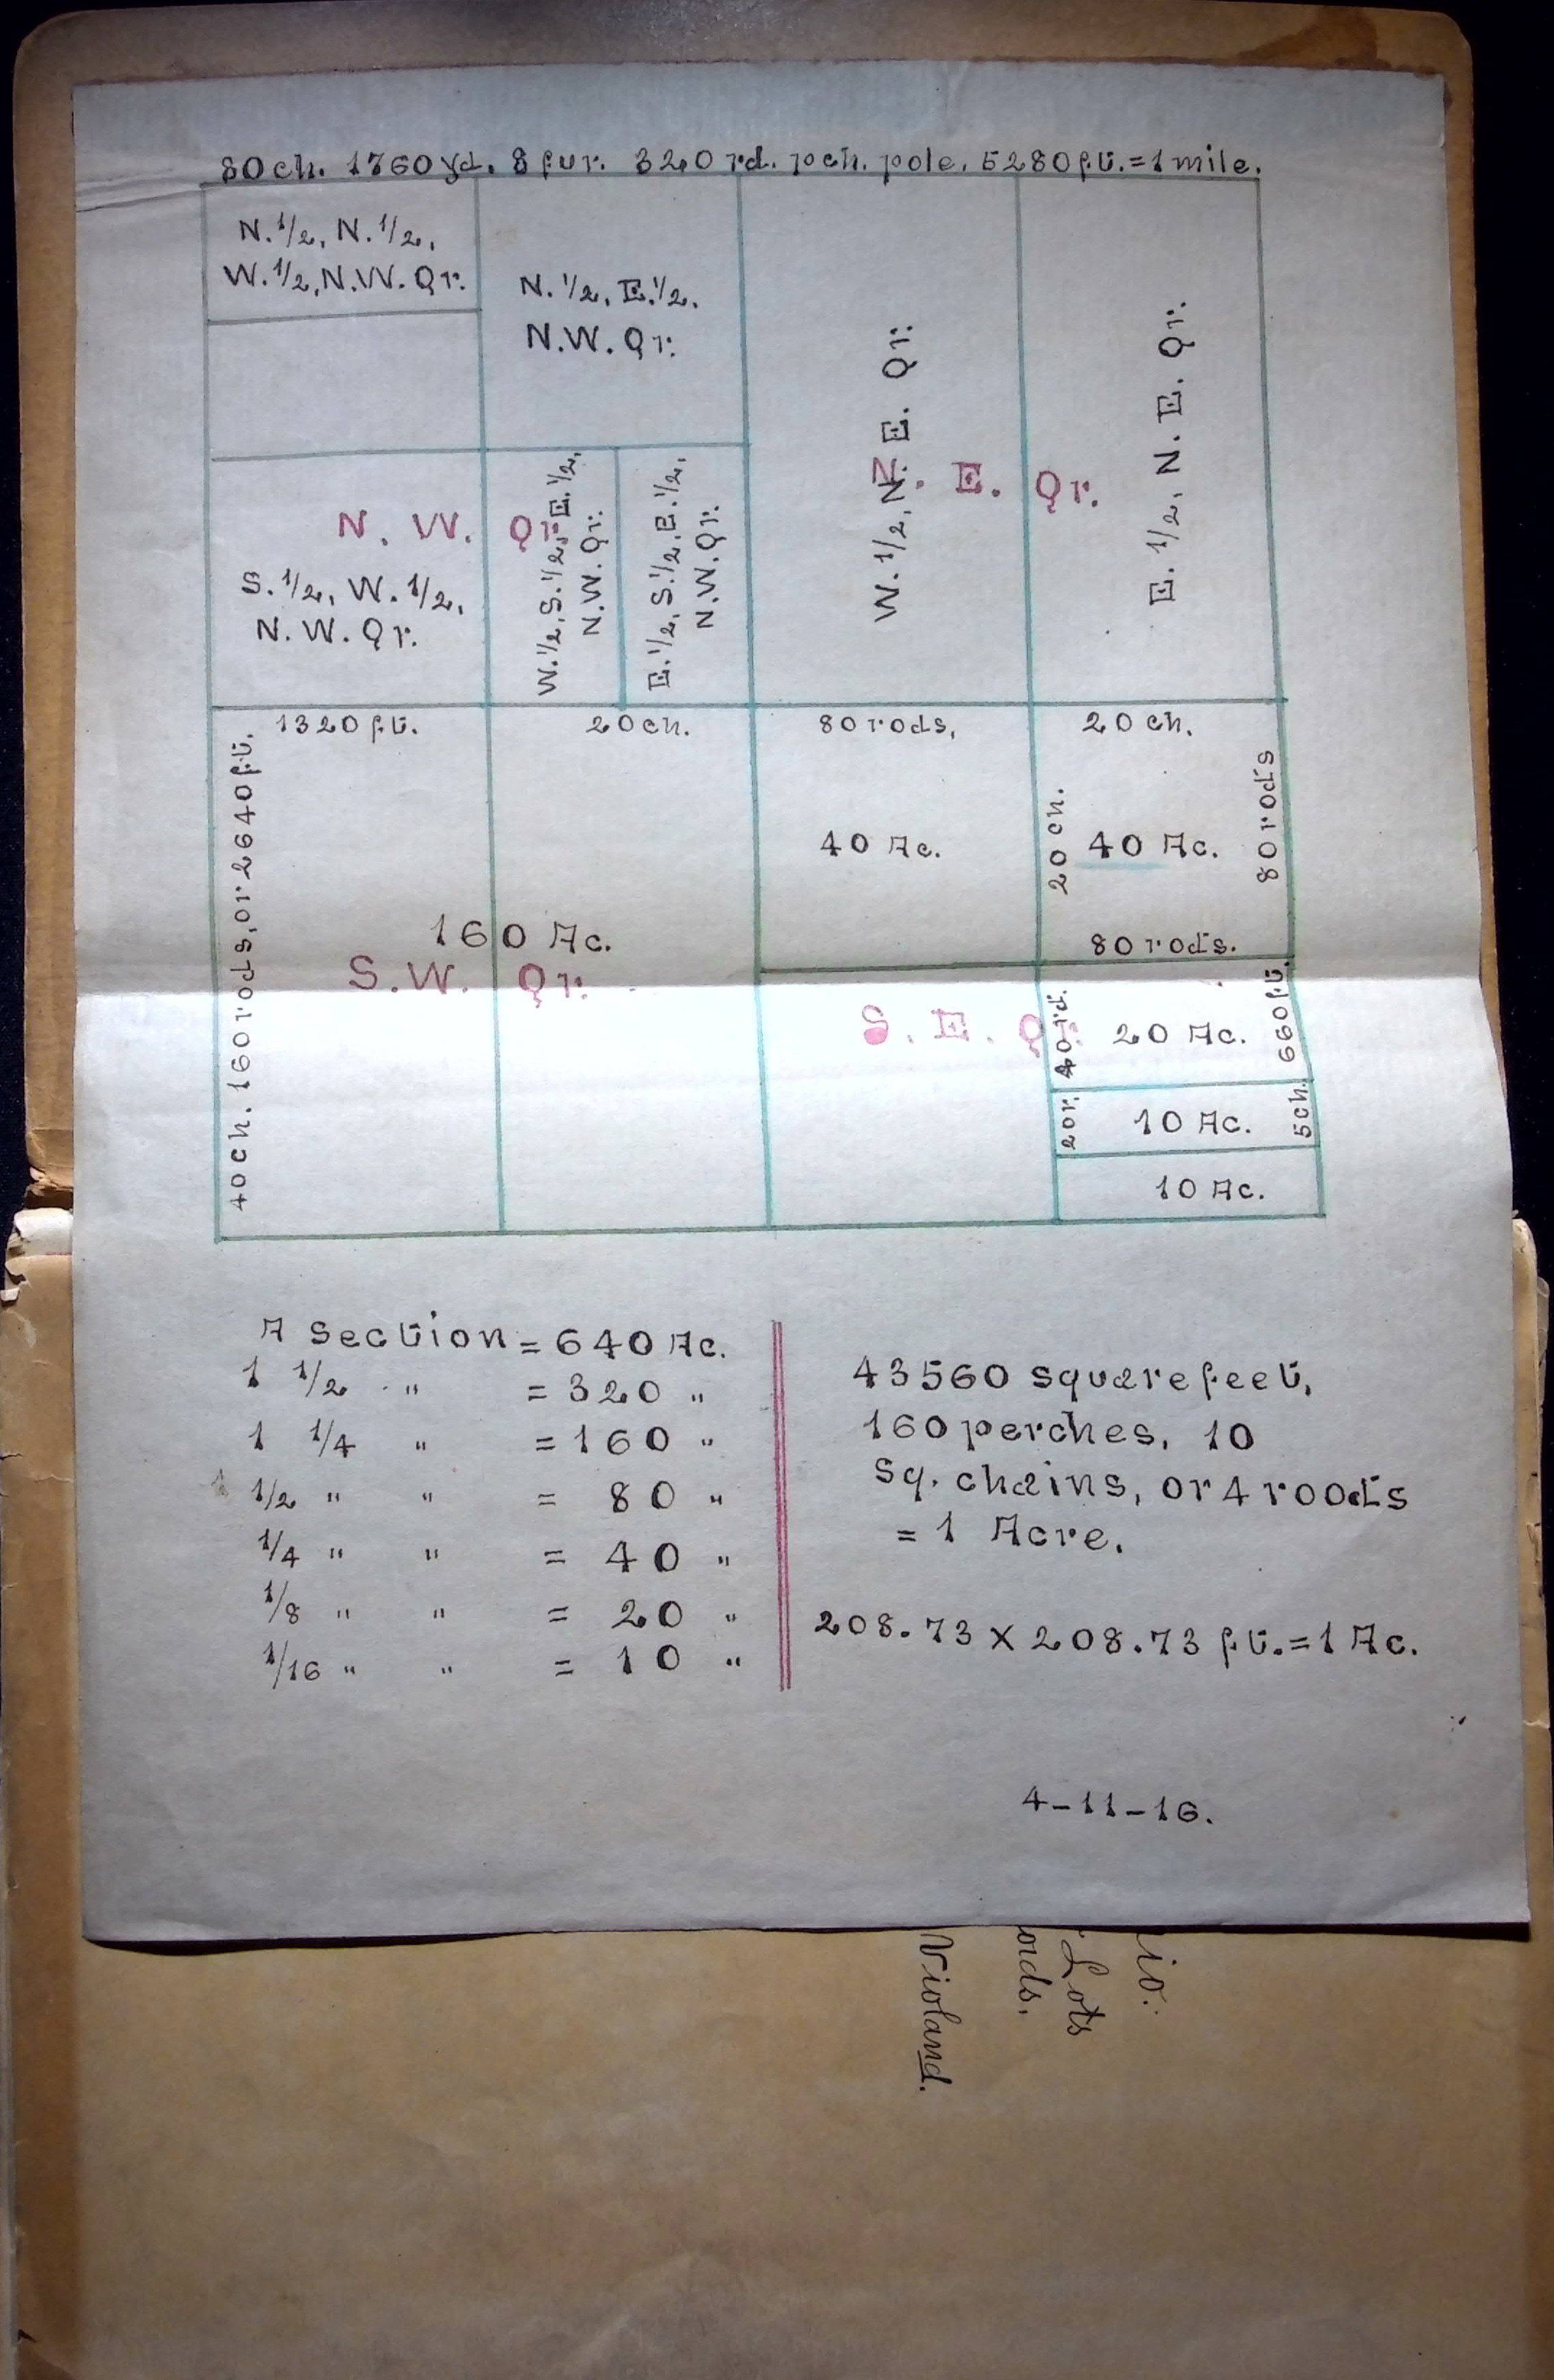 80ch. 1760yd. 8 fur. 320 rd. pch. pole. 5280ft.=1mile.
N.1/2, N.1/2,
W.1/2,N.W.Qr.
N.1/2, E.1/2.
N.W.Qr.
W.1/2, N.E. Qr.
E.1/2, N.E. Qr.
N.E. Qr.
N.W. Qr.
S.1/2, W.1/2,
N.W.Qr.
W.1/2,S.1/2,E.1/2,
N.W.Qr.
E.1/2,S.1/2,E.1/2,
N.W.Qr.
1320ft.
20ch.
80rods,
20ch.
40ch. 160rods,or2640ft.
160 Ac.
S.W. Qr.
40 Ac.
20ch.
40 Ac.
80rods
80rods.
S.E.Qr.
40rd.
20 Ac.
660ft.
20r.
10 Ac.
5ch.
10 Ac.
A section=640Ac.
1 1/2 " =320 "
1 1/4 " =160 "
1/2 " " = 80 "
1/4 " " = 40 "
1/8 " " = 20 "
1/16 " " = 10 "
43560 squarefeet,
160perches, 10
sq. chains, or4roods
=1 Acre.
208.73x208.73ft.=1Ac.
4-11-16.
Lots
Violand.